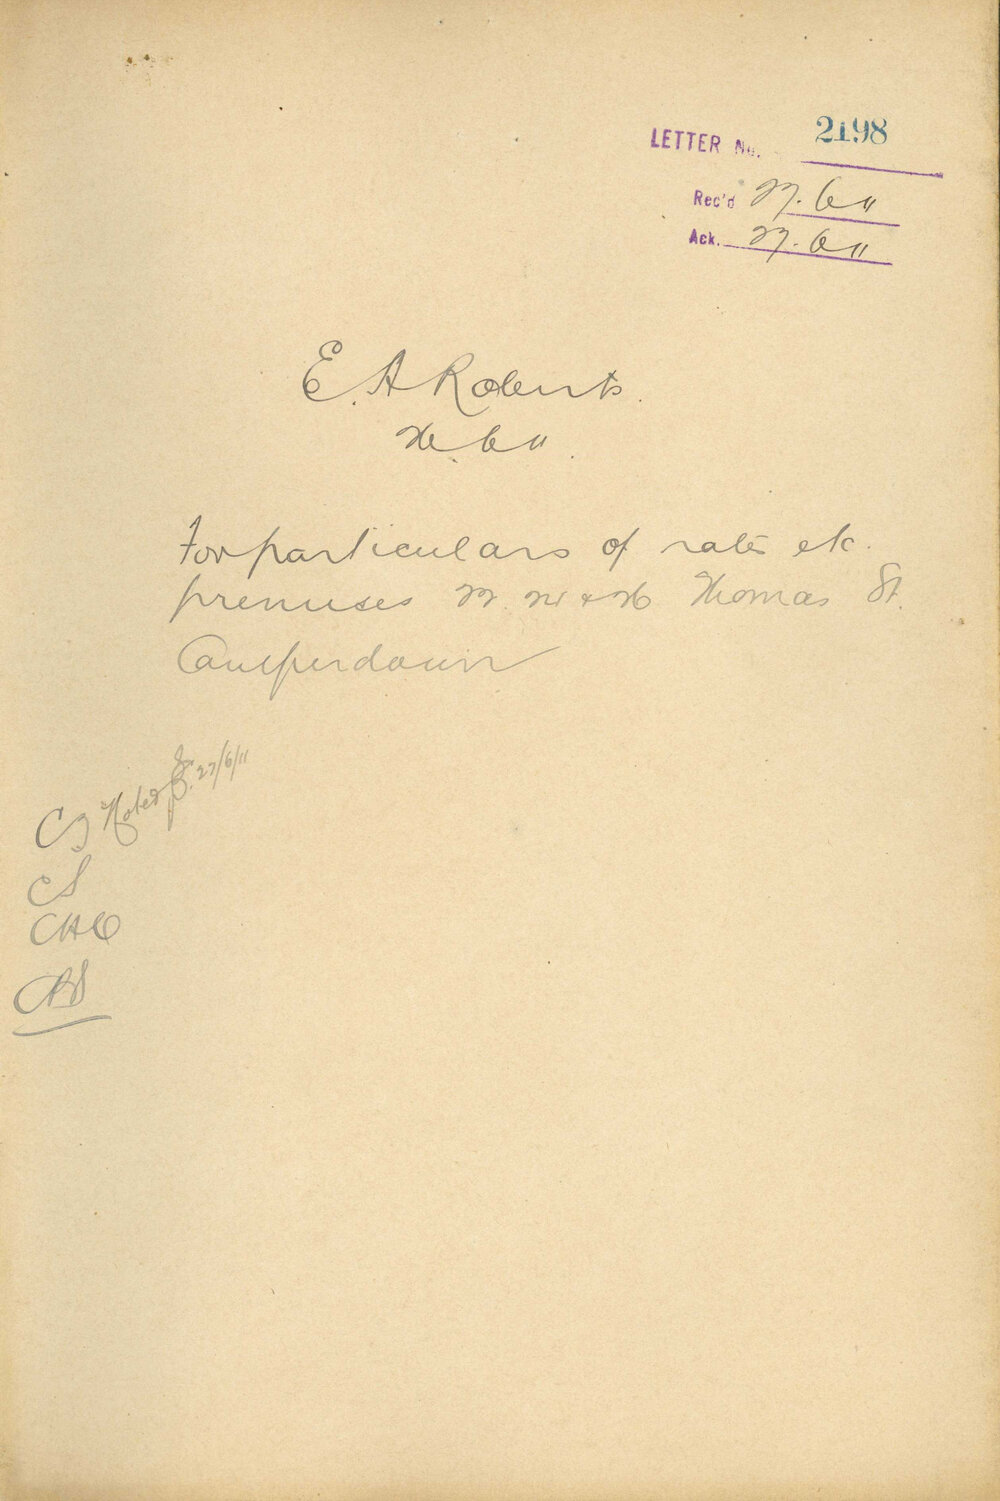 LETTER No. 2198
Rec'd 27.6.11
Ack. 27.6.11
E. A Roberts.
26.6.11.
For particulars of rates etc.
premises 22. 24 & 26 Thomas St.
Camperdown
Noted 27/6/11
CS